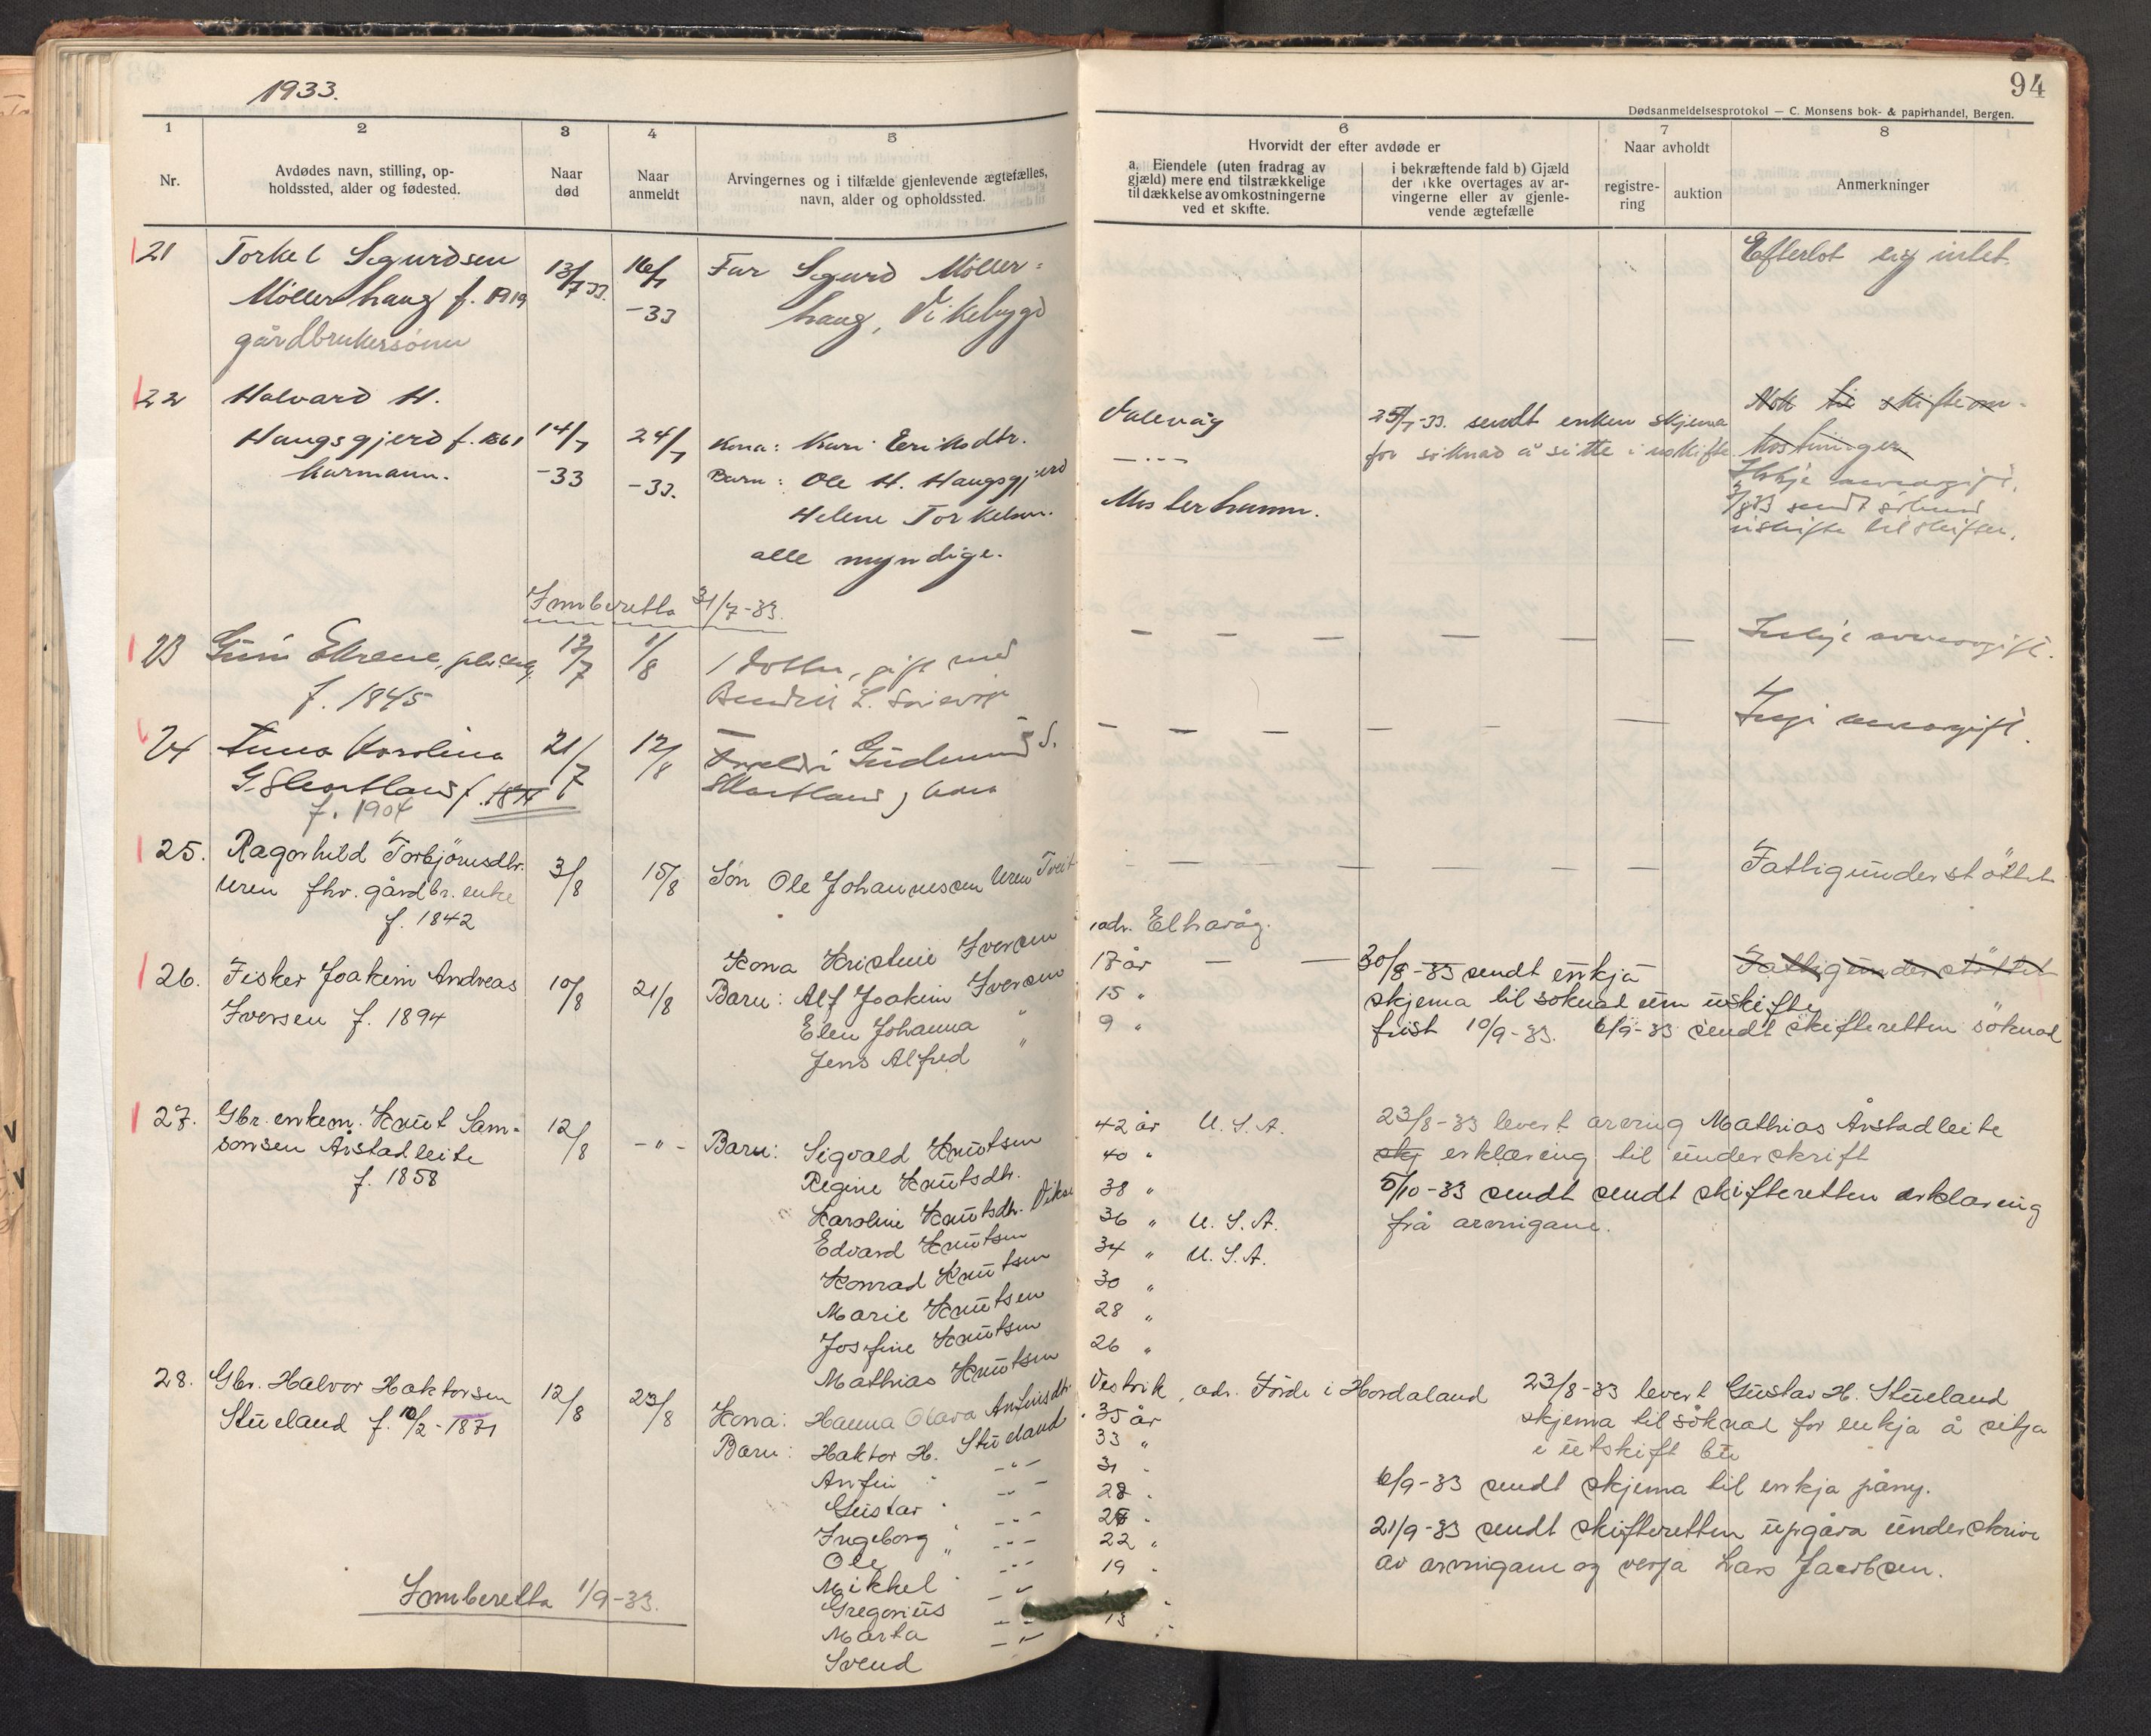 1933.
94
Dødsanmeldelsesprotokol — C. Monsens bok- & papirhandel, Bergen.
1 2 3 4 5 6 7 8
Nr.
Avdødes navn, stilling, op-
holdssted, alder og fødested.
Naar
død
Naar
anmeldt
Arvingernes og i tilfælde gjenlevende ægtefælles,
navn, alder og opholdssted.
Hvorvidt der efter avdøde er
a. Eiendele (uten fradrag av
gjæld) mere end tilstrækkelige
til dækkelse av omkostningerne
ved et skifte.
i bekræftende fald b) Gjæld
der ikke overtages av ar-
vingerne eller av gjenle-
vende ægtefælle
Naar avholdt
registre-
ring
auktion
Anmerkninger
21 Torkel Sigurdsen 13/7 33. 16/7 Far Sigurd Möller- Efterlot sig intet.
Möllerhaug f. 1919 -33 haug, Vikebygd
gårdbrukersønn
22 Halvard H.
Haugsgjerd f. 1861 14/7 24/7 Kona: Kari Eriksdtr. Valevåg 25/7-33. sendt enken skjema Nok til skifteom-
kårmann. -33 -33. Barn: Ole H. Haugsgjerd -"- for søknad å sitte i uskifte kostninger
Helene Torkelsen. Mosterhamn. Ikkje arveavgift.
alle myndige. 2/8 33 sendt
uskifte til skifter.
Innberetta 31/7-33.
23 Guri 12/7 1/8 1 dotter, gift med — — — — — — Inkje arveavgift.
f. 1845 L.
24 Anna Karolina 21/7 12/8 Foreldri Gudmund S. — — — — — — Inkje arveavgift.
G. Skartland f. 18 Skartland, kona
f. 1904
25. Ragnhild Torbjørnsdtr. 3/8 15/8 Søn Ole Johannesen Uren Tveit — — — — — — Fattigunderstöttet
Uren fhv. gårdbr. enke
f. 1842 adr. Elhavåg.
26. Fisker Joakim Andreas 10/8 21/8 Kona Kristine Iversen
Iversen f. 1894 Barn: Alf Joakim Iversen 17 år — — 30/8-33 sendt enkja Fattigunderstöttet
Elen Johanna " 15 " skjema til søknad um uskifte
Jens Alfred " 9 " frist 10/9-33. 6/9-33 sendt skifteretten söknad
27. Gbr. enkem. Knut Sam- 12/8 -"- Barn: Sigvald Knutsen 42 år U.S.A. 23/8-33 levert arving Mathias Årstadleite
sonsen Årstadleite Regine Knutsdtr. 40 " skj erklæring til underskrift
f. 1858 Karoline Knutsdtr. Vikse 38 " 5/10-33 sendt sendt skifteretten erklæring
Edvard Knutsen 36 " U.S.A. frå arvingane.
Konrad Knutsen 34 " U.S.A.
Marie Knutsen 30 "
Josefine Knutsen 28 "
Mathias Knutsen 26 "
28. Gbr. Halvor Haktorsen 12/8 23/8 Kona: Hanna Olava Anfinsdtr. Vestvik, adr. Förde i Hordaland 23/8-33 levert Gustav H. Stueland
Stueland f. 10/2-1871 Barn: Haktor H. Stueland 35 år skjema til søknad for enkja å sitja
Anfin " -"- 33 " i uskift bu
Gustav " -"- 31 " 6/9-33 sendt skjema til enkja påny.
Ingeborg " -"- 28 " 21/9-33 sendt skifteretten uppgåva underskrive
Ole " -"- 2 " av arvingane og verja Lars Jacobsen.
Mikkel " -"- 22 "
Gregorius -"- 19 "
Marta -"-
Svend -"- 13 "
Innberetta 1/9-33.